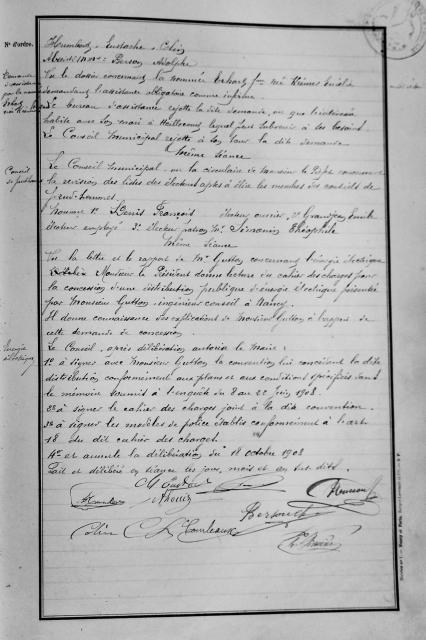 N° d'ordre.
Humbert, Eustache, Colin
Berson Adolphe
Vu le dossier concernant la nommée Erhard fme née
demandant l'assistance obligatoire comme infirme
Le bureau d'assistance rejette la dite demande, vu que
habite avec son mari à lequel peut subvenir à ses besoins.
Le Conseil Municipal rejette à son tour la dite demande.
Même séance
Conseil
de prud'hommes
Le Conseil Municipal, vu la circulaire de Monsieur le Préfet concernant
la révision des listes des électeurs aptes à élire les membres des conseils de
prud'hommes.
Nomme 1° Denis François électeur ouvrier, 2° Grandjean Emile
électeur employé 3° électeur patron Mr Théophile
Même séance
Vu la lettre et le rapport de Mr Gutton concernant l'énergie électrique
Monsieur le Président donne lecture du cahier des charges pour
la concession d'une distribution publique d'énergie électrique présenté
par Monsieur Gutton, ingénieur conseil à Nancy.
Il donne connaissance des explications de Monsieur Gutton à l'appui de
cette demande de concession.
Energie
électrique
Le Conseil, après délibération autorise le Maire :
1° à signer avec Monsieur Gutton la convention lui concédant la dite
distribution conformément aux plans et aux conditions spécifiées dans
le mémoire soumis à l'enquête du 8 au 22 Juin 1908.
2° à signer le cahier des charges joint à la dite convention.
3° à signer les modèles de police établis conformément à l'art
18 du dit cahier des charges.
4° et annule la délibération du 18 octobre 1908
Fait et délibéré en séance les jour, mois et an sus dits.
Colin